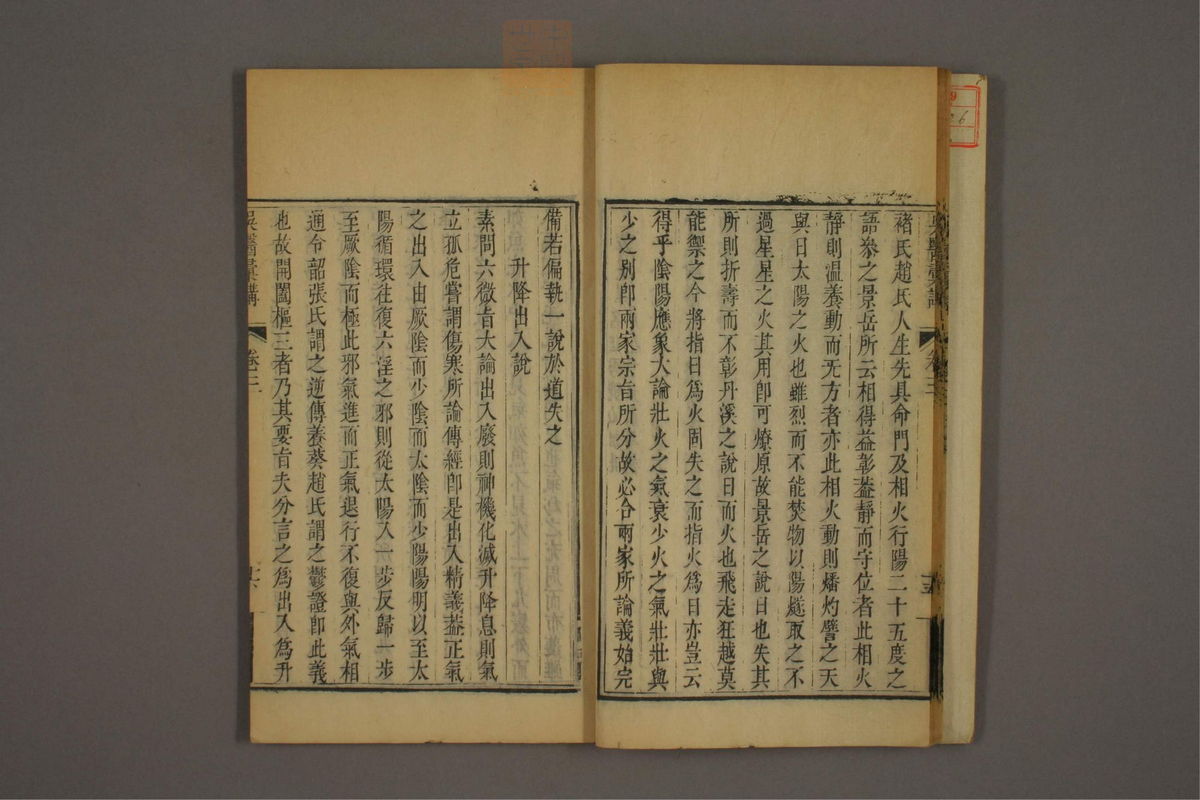 褚氏趙氏人生先具命門及相火行陽二十五度之
語叅之景岳所云相得益彰葢靜而守位者此相火
靜則温養動而无方者亦此相火動則燔灼譬之天
與日太陽之火也雖烈而不能焚物以陽燧取之不
過星星之火其用卽可燎原故景岳之說日也失其
所則折壽而不彰丹溪之說日而火也飛走狂越莫
能禦之今將指日爲火固失之而指火爲日亦豈云
得乎陰陽應象大論壯火之氣衰少火之氣壯壯與
少之別卽兩家宗旨所分故必合兩家所論義始完
備若偏執一說於道失之
升降出入說
素問六微旨大論出入廢則神機化滅升降息則氣
立孤危嘗謂傷寒所論傳經卽是出入精義葢正氣
之出入由厥陰而少陰而太陰而少陽陽明以至太
陽循環往復六淫之邪則從太陽入一步反歸一步
至厥陰而極此邪氣進而正氣退行不復與外氣相
通令韶張氏謂之逆傳養葵趙氏謂之鬱證卽此義
也故開闔樞三者乃其要旨夫分言之爲出入爲升
吳醫彙講
卷三